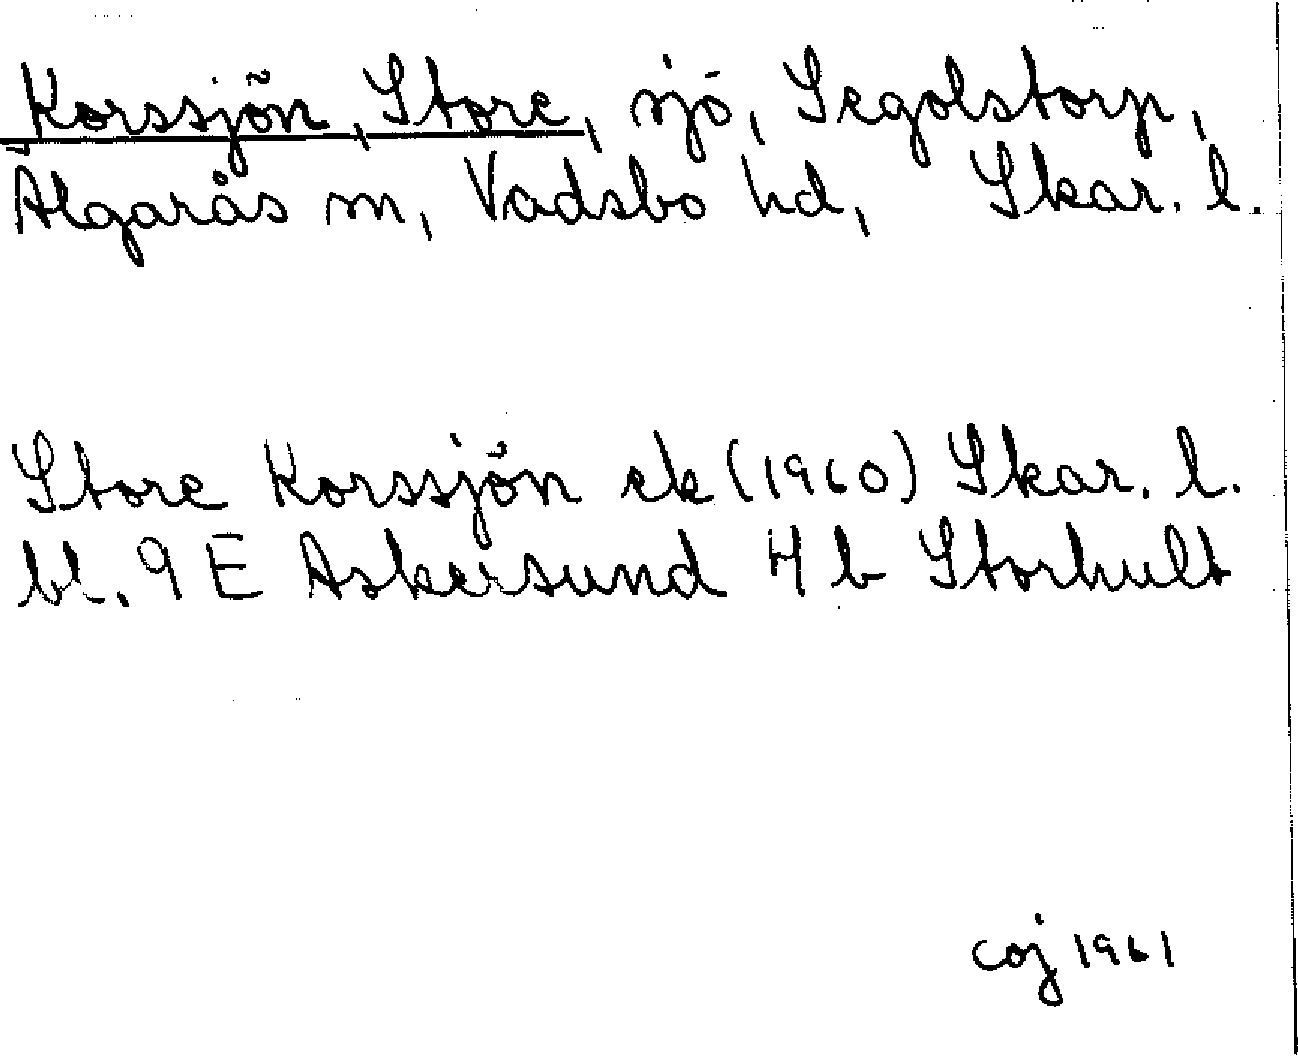 Korssjön, Store, sjö, Segolstorp,
Älgarås sn, Vadsbo hd, Skar. l.
Store Korssjön ek (1960) Skar. l.
bl. 9 E Askersund 4 b Storhult
coj 1961